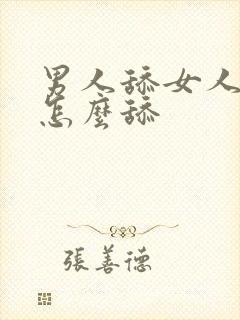 男人舔女人
怎麼舔
張善德